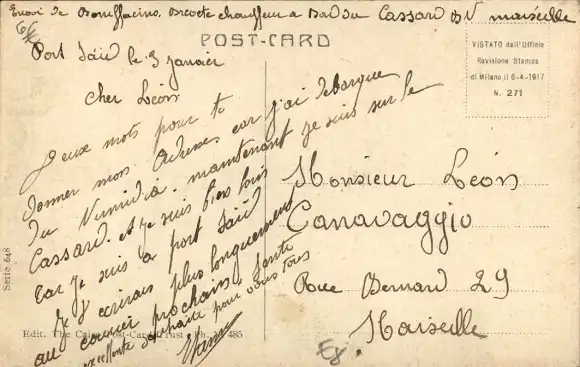 Envoi de Bonifacino, Breveté chauffeur a Bord du Cassard BN Marseille
POST-CARD
VISTATO dall'Ufficio
Revisione Stampa
di Milano il 6-4-1917
N. 271
Port Saïd le 3 Janvier
Cher Léon
Deux mots pour te
donner mon Adresse car j'ai debarqué
du Numidia. maintenant je suis sur le
Cassard. et je suis bien loin
car je suis a port Saïd
Je t'ecrirais plus longuement
au courrier prochain. Santé
excellente souhaite pour vous tous
Monsieur Léon
Canavaggio
Rue Bernard 29
Marseille
Serie 646
Edit. The Cairo Post-Card Trust 485